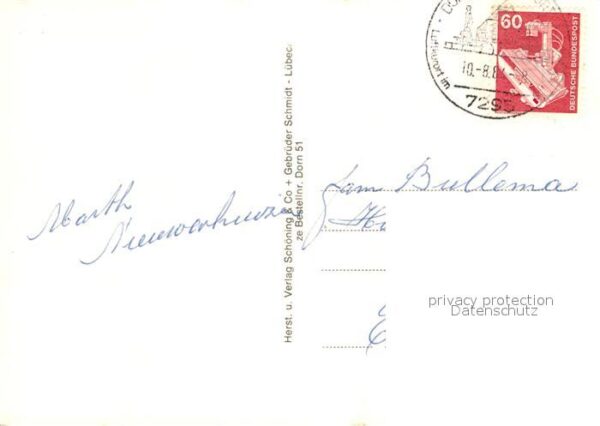 60
DEUTSCHE BUNDESPOST
Luftkurort im
10.-8.8
7295
Marth
Nieuwenhuize
Herst. u. Verlag Schöning & Co + Gebrüder Schmidt - Lübec
ze Bestellnr. Dorn 51
Fam Bullema
privacy protection
Datenschutz